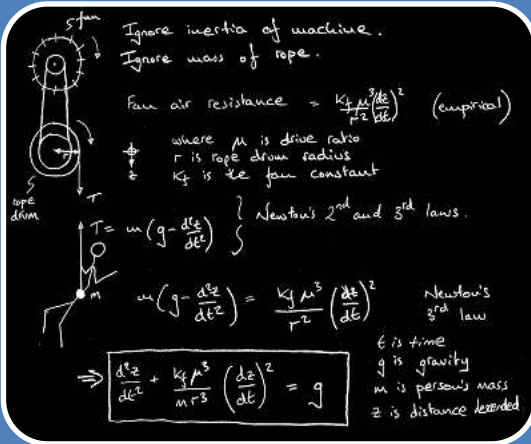 fan
Ignore inertia of machine.
Ignore mass of rope.
Fan air resistance = K_f μ³/r² (dz/dt)² (empirical)
where μ is drive ratio
r is rope drum radius
K_f is the fan constant
r
z
rope drum
T
T = m(g - d²z/dt²) } Newton's 2nd and 3rd laws.
m
m(g - d²z/dt²) = K_f μ³/r² (dz/dt)² Newton's 3rd law
t is time
g is gravity
m is person's mass
z is distance descended
⇒ d²z/dt² + K_f μ³/m r³ (dz/dt)² = g